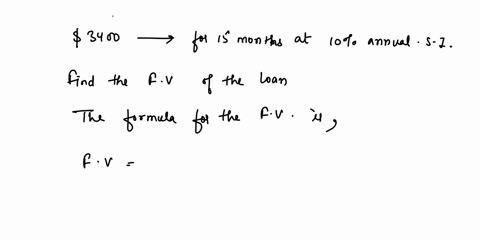 $ 3400 ⟶ for 15 months at 10% annual . S.I.
find the F.V of the loan
The formula for the F.V. is,
F.V =